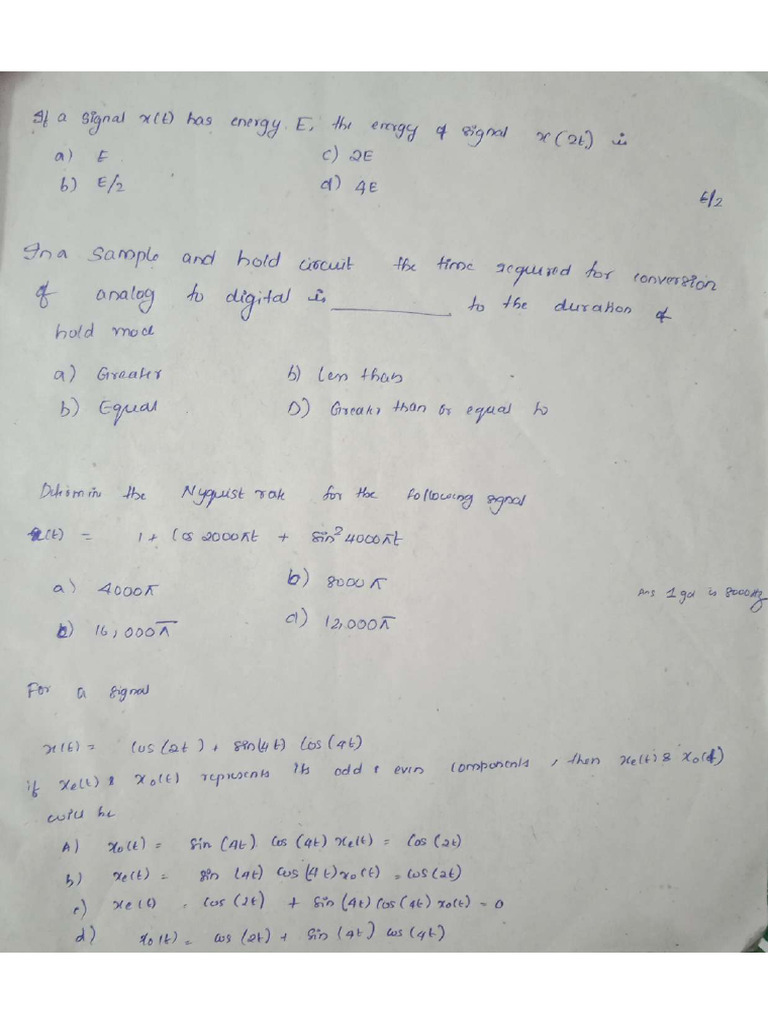 If a signal x(t) has energy E, the energy of signal x(2t) is
a) E c) 2E
b) E/2 d) 4E
E/2
In a sample and hold circuit the time required for conversion
of analog to digital is __________ to the duration of
hold mod
a) Greater b) less than
b) Equal D) Greater than or equal to
Determin the Nyquist rate for the following signal
x(t) = 1 + Cos 2000πt + sin² 4000πt
a) 4000π b) 8000π
Ans I got is 8000Hz
b) 16,000π d) 12,000π
For a signal
x(t) = cos(2t) + sin(4t) cos(4t)
if xe(t) & xo(t) represents its odd & even components, then xe(t) & xo(t)
will be
A) xo(t) = sin(4t) cos(4t) xe(t) = cos(2t)
b) xe(t) = sin(4t) cos(4t) xo(t) = cos(2t)
c) xe(t) = cos(2t) + sin(4t) cos(4t) xo(t) = 0
d) xo(t) = cos(2t) + sin(4t) cos(4t)